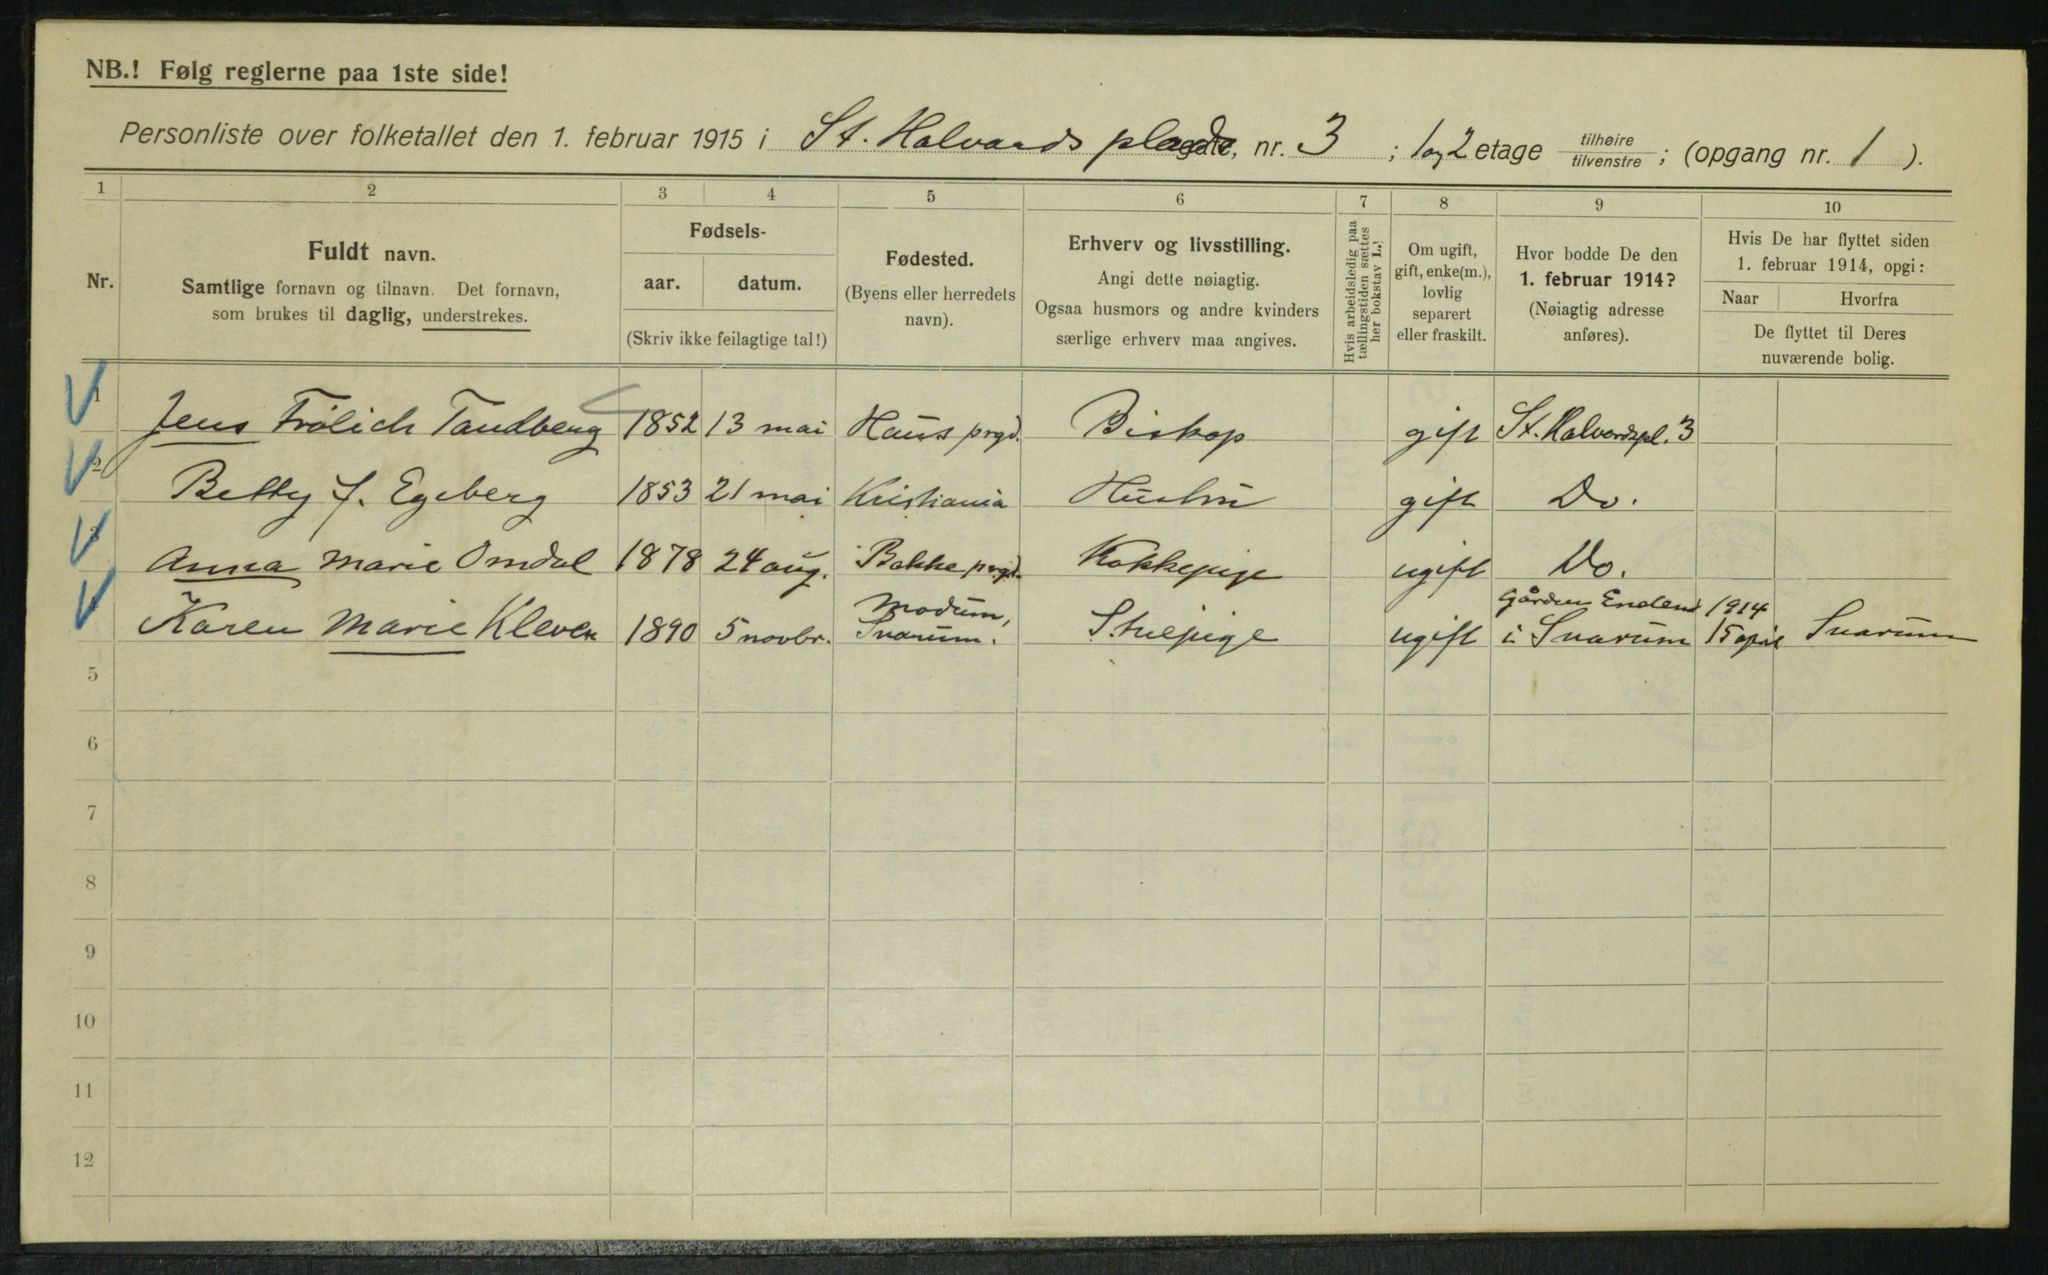 NB.! Følg reglerne paa 1ste side!
Personliste over folketallet den 1. februar 1915 i St. Halvards plads gate, nr. 3 ; 1 og 2 etage tilhøire / tilvenstre ; (opgang nr. 1 ).
1 2 3 4 5 6 7 8 9 10
Nr.
Fuldt navn.
Samtlige fornavn og tilnavn. Det fornavn,
som brukes til daglig, understrekes.
Fødsels-
aar. datum.
(Skriv ikke feilagtige tal!)
Fødested.
(Byens eller herredets
navn).
Erhverv og livsstilling.
Angi dette nøiagtig.
Ogsaa husmors og andre kvinders
særlige erhverv maa angives.
Hvis arbeidsledig paa
tællingstiden sættes
her bokstav L.!
Om ugift,
gift, enke(m.),
lovlig
separert
eller fraskilt.
Hvor bodde De den
1. februar 1914?
(Nøiagtig adresse
anføres).
Hvis De har flyttet siden
1. februar 1914, opgi:
Naar Hvorfra
De flyttet til Deres
nuværende bolig.
1 Jens Frölich Tandberg 1852 13 mai Haus prgd. Biskop gift St. Halvardspl. 3
2 Betty J. Egeberg 1853 21 mai Kristiania Hustru gift Do.
3 Anna Marie Omdal 1878 24 aug. Bakke prgd. Kokkepige ugift Do.
4 Karen Marie Kleven 1890 5 novbr. Modum, Snarum. Stuepige ugift Gården Enderud i Snarum 1914 15 april Snarum
5
6
7
8
9
10
11
12